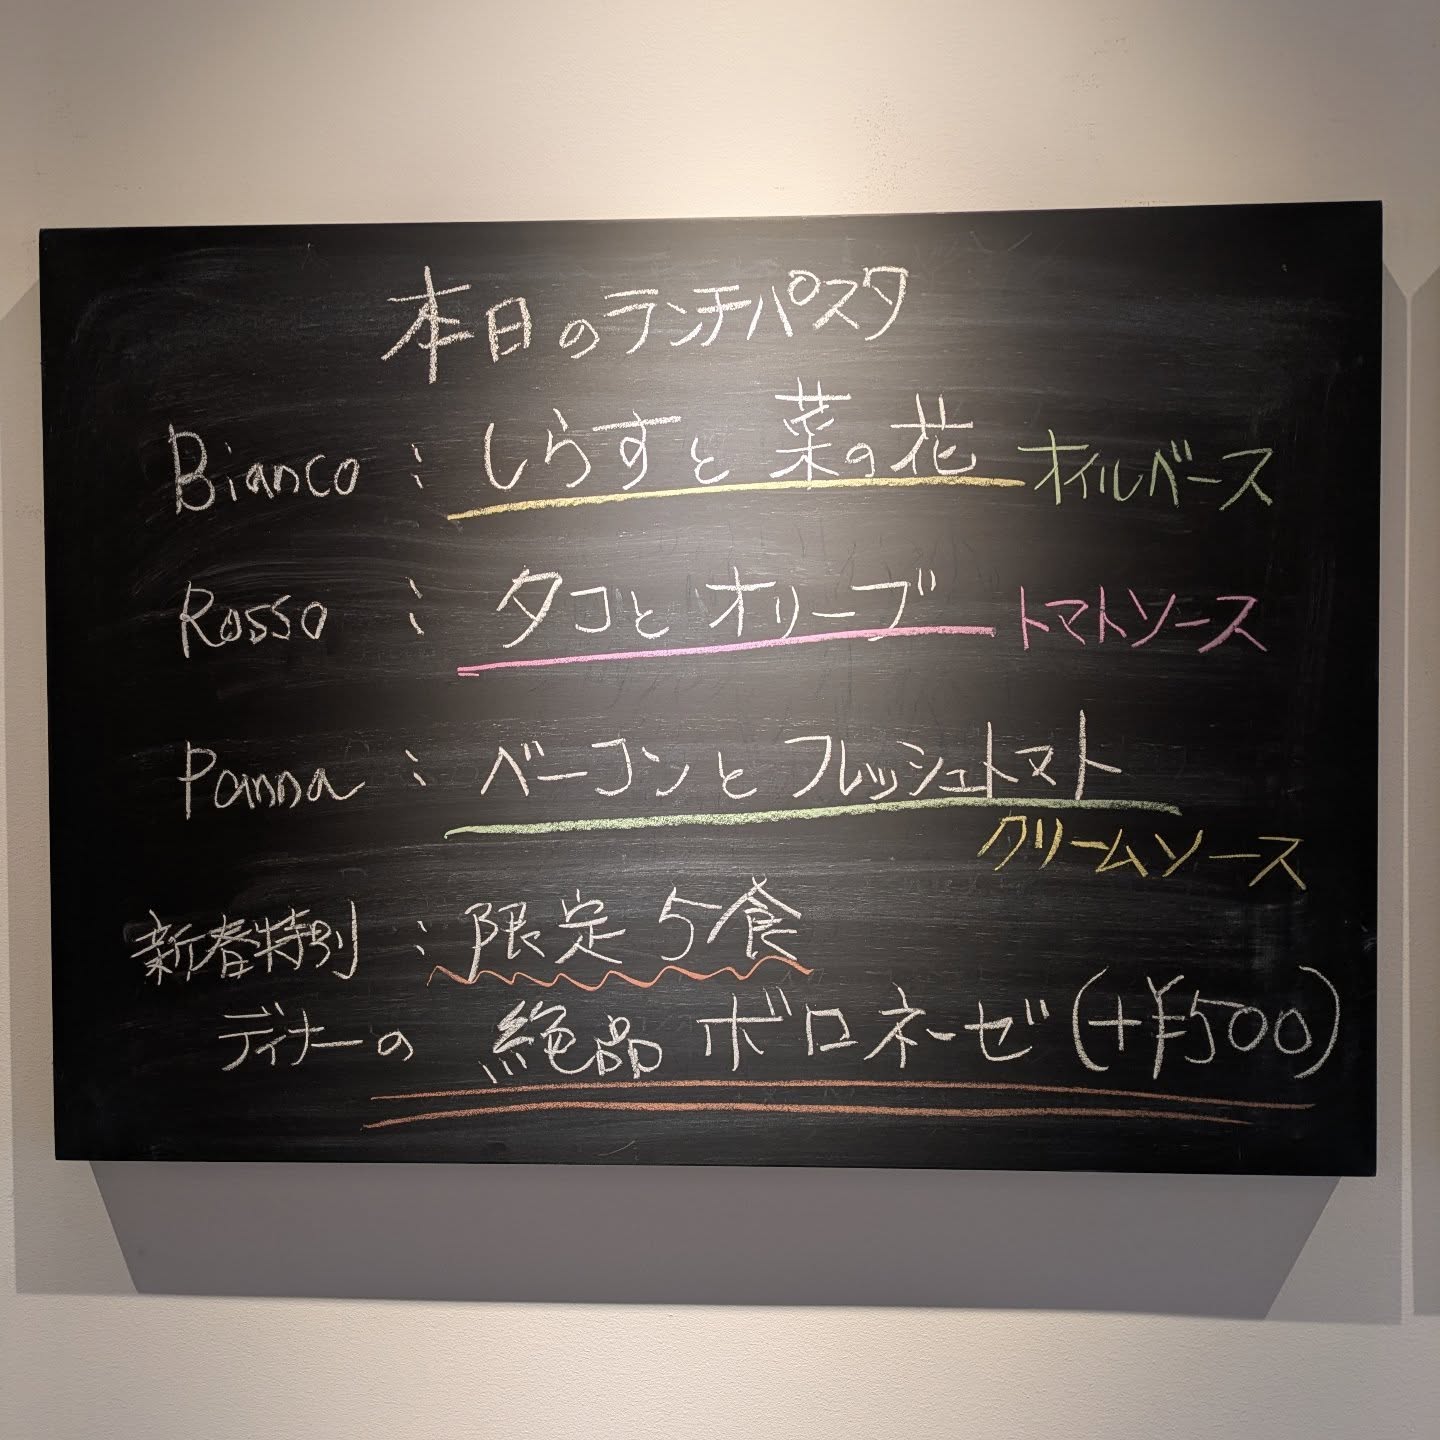 本日のランチパスタ
Bianco : しらすと菜の花 オイルベース
Rosso : タコとオリーブ トマトソース
Panna : ベーコンとフレッシュトマト
クリームソース
新春特別 : 限定5食
ディナーの 絶品 ボロネーゼ (+¥500)